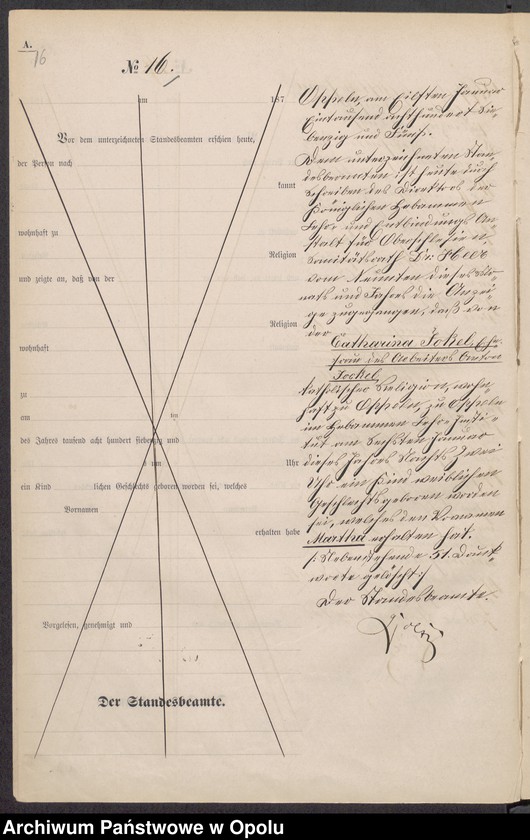 A.
16
№ 16.
am 187
Vor dem unterzeichneten Standesbeamten erschien heute,
der Person nach
kannt
wohnhaft zu
Religion
und zeigte an, daß von der
Religion
wohnhaft
zu
am ten
des Jahres tausend acht hundert siebenzig und
um Uhr
ein Kind lichen Geschlechts geboren worden sei, welches
Vornamen
erhalten habe
Vorgelesen, genehmigt und
Der Standesbeamte.
Oppeln, am Eilften Januar
Eintausend achthundert Sie-
benzig und Fünf.
Dem unterzeichneten Stan-
desbeamten ist heute durch
Schreiben des Direktors der
Königlichen Hebammen
Lehr und Entbindungs An-
stalt für Oberschlesien
Sanitätsrath Dr.
vom Neunten dieses Mo-
nats und Jahres die Anzei-
ge zugegangen, daß von
der
Catharina Jokel, Ehe-
frau des Arbeiters Anton
Jockel,
katholischer Religion, wohn-
haft zu Oppeln, zu Oppeln
im Hebammen Lehr Insti-
tut am Sechsten Januar
dieses Jahres Nachts Zwei
Uhr ein Kind weiblichen
Geschlechts geboren worden
sei, welches den Vornamen
Martha erhalten hat.
/: Nebenstehende 51 Druck-
worte gelöscht :/
Der Standesbeamte.
Archiwum Państwowe w Opolu